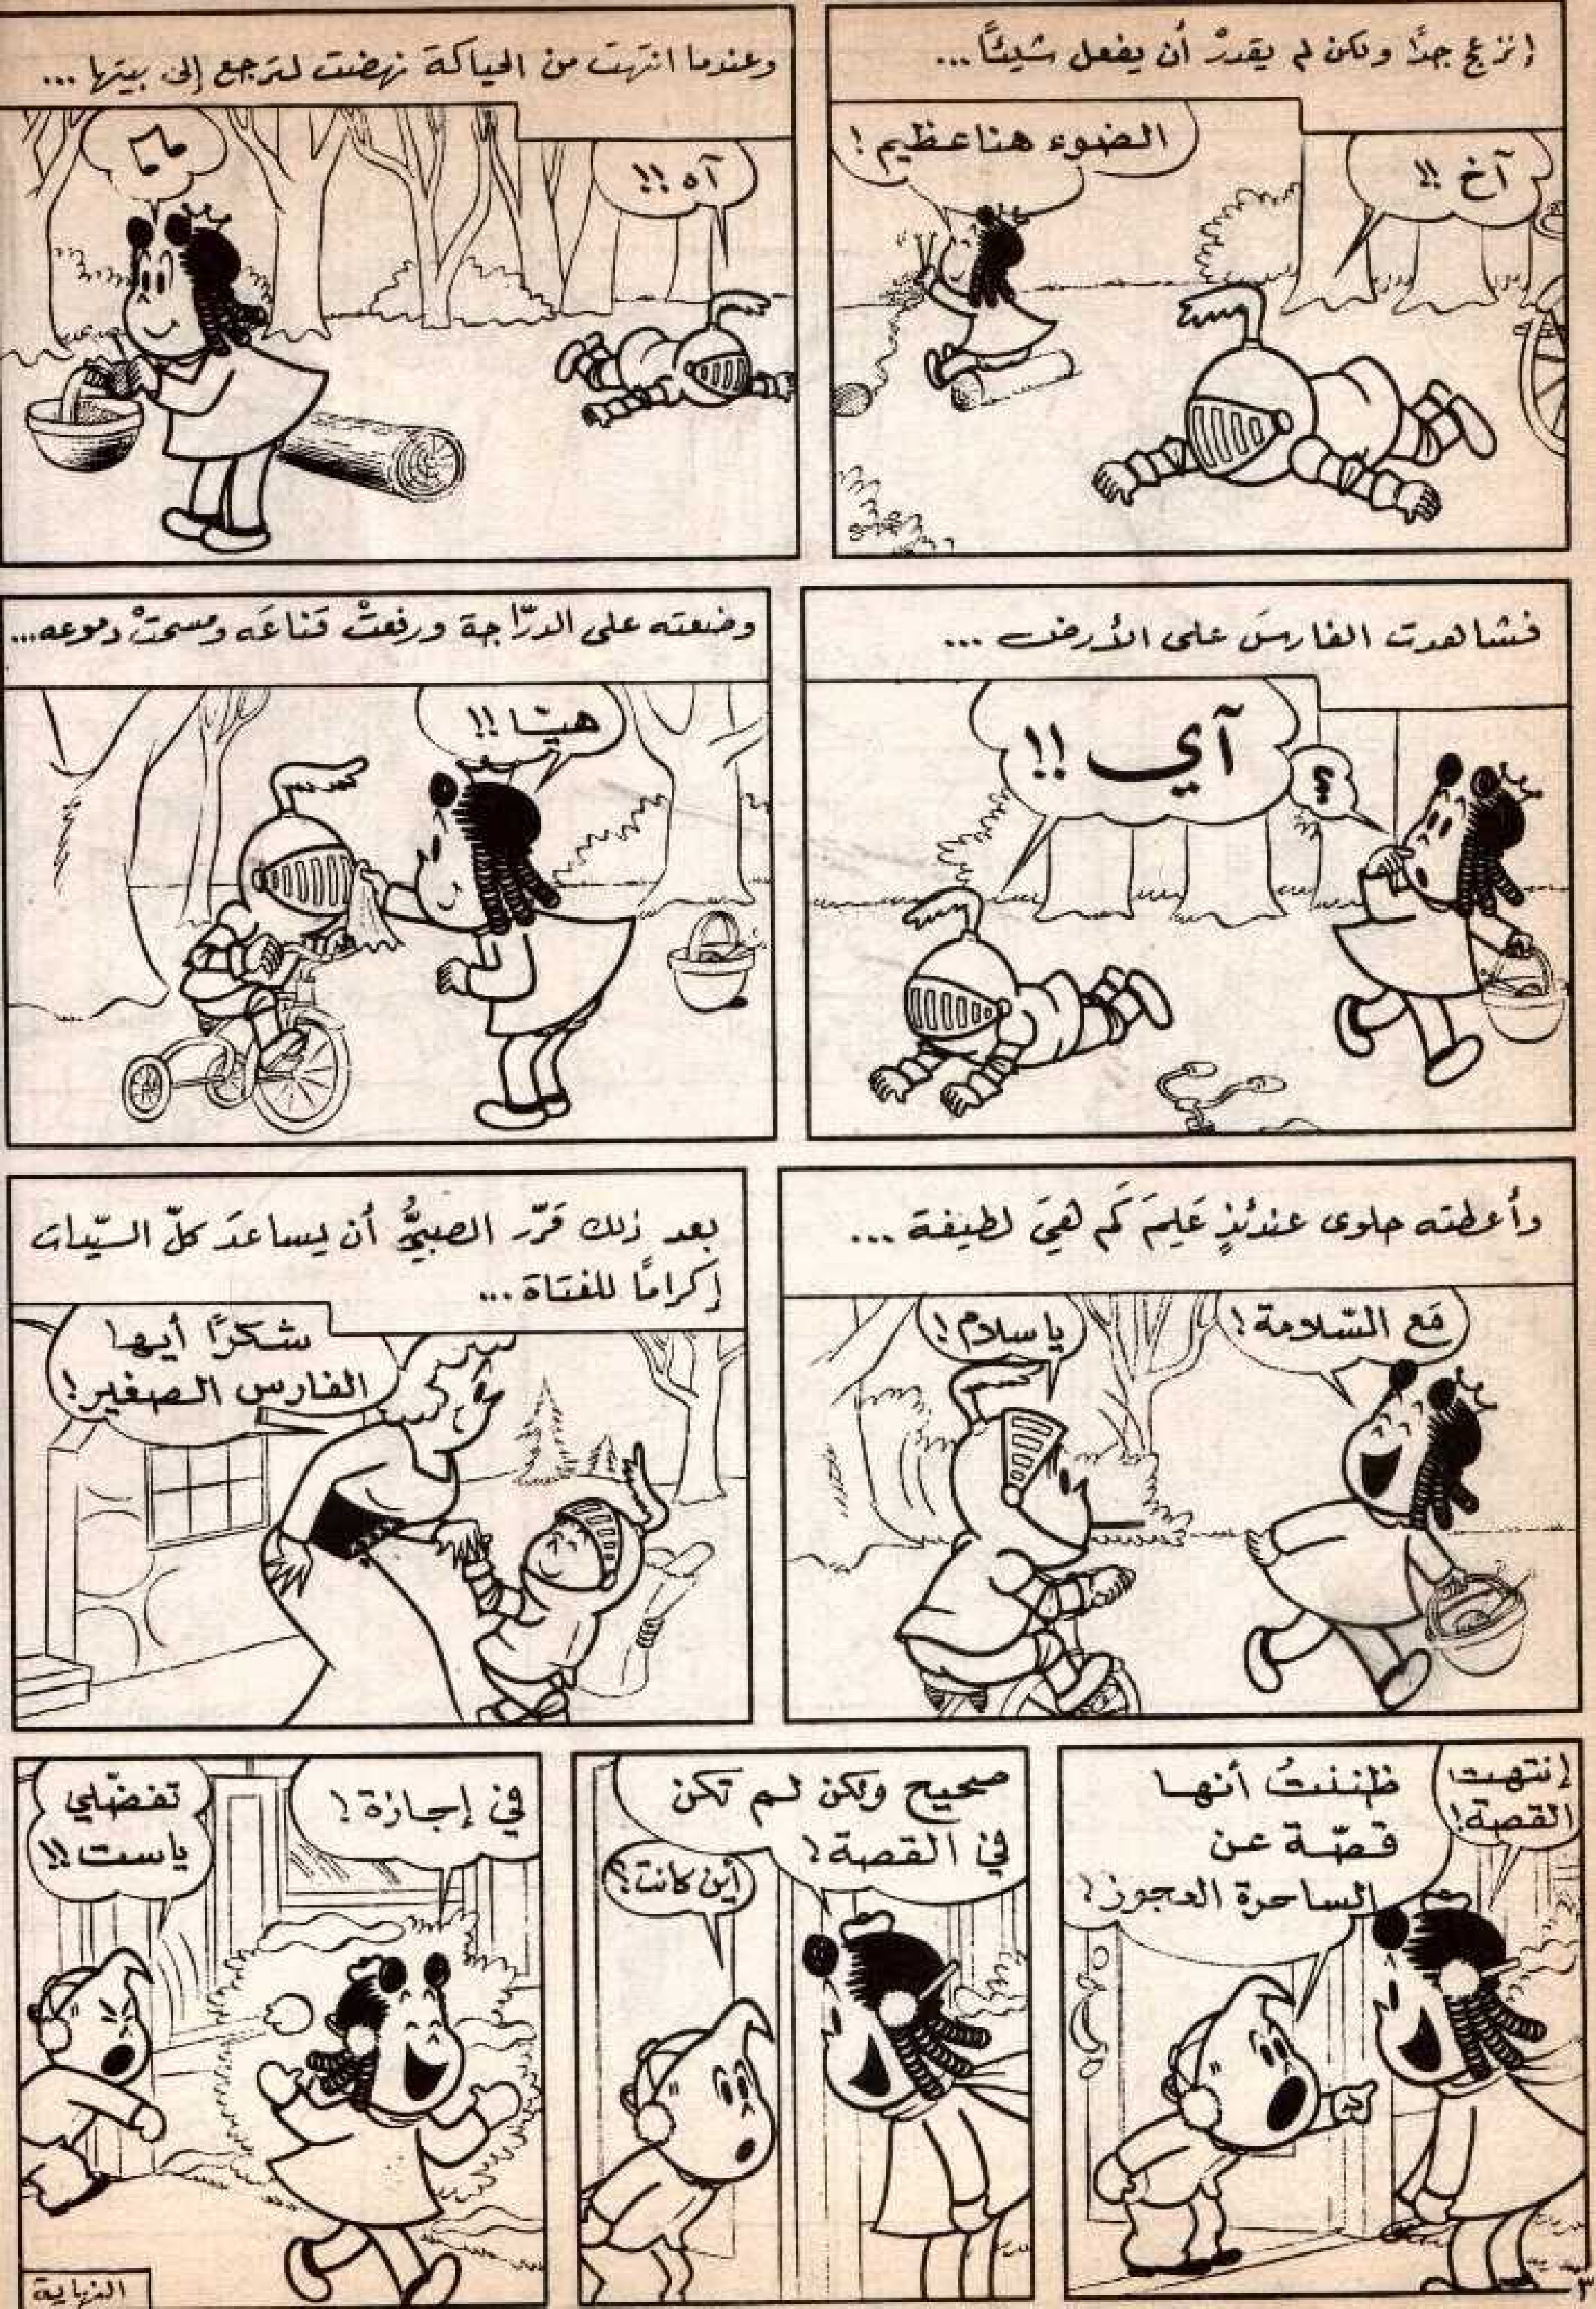 إنزعج جدًا ولكن لم يقدرْ أن يفعل شيئًا...
آخ !!
الضوء هنا عظيم!
وعندما انتهت من الحياكة نهضت لترجع إلى بيتها ...
آه !!
فشاهدت الفارسَ على الأرض ...
؟؟
آي !!
وضعته على الدرّاجة ورفعتْ قناعَه ومسحتْ دموعه...
هيّا !!
وأعطته حلوى عندئذٍ عَلِمَ كَم هيَ لطيفة ...
مَع السّلامة!
يا سلام!
بعد ذلك قرّر الصبيُّ أن يساعدَ كلّ السيّدات
إكرامًا للفتاة ...
شكرًا أيها
الفارس الصغير!
إنتهت
القصة!
ظننتُ أنها
قصّة عن
الساحرة العجوز!
صحيح ولكن لم تكن
في القصة!
أين كانت؟
في إجازة!
تفضّلي
ياست !!
النهاية
٣